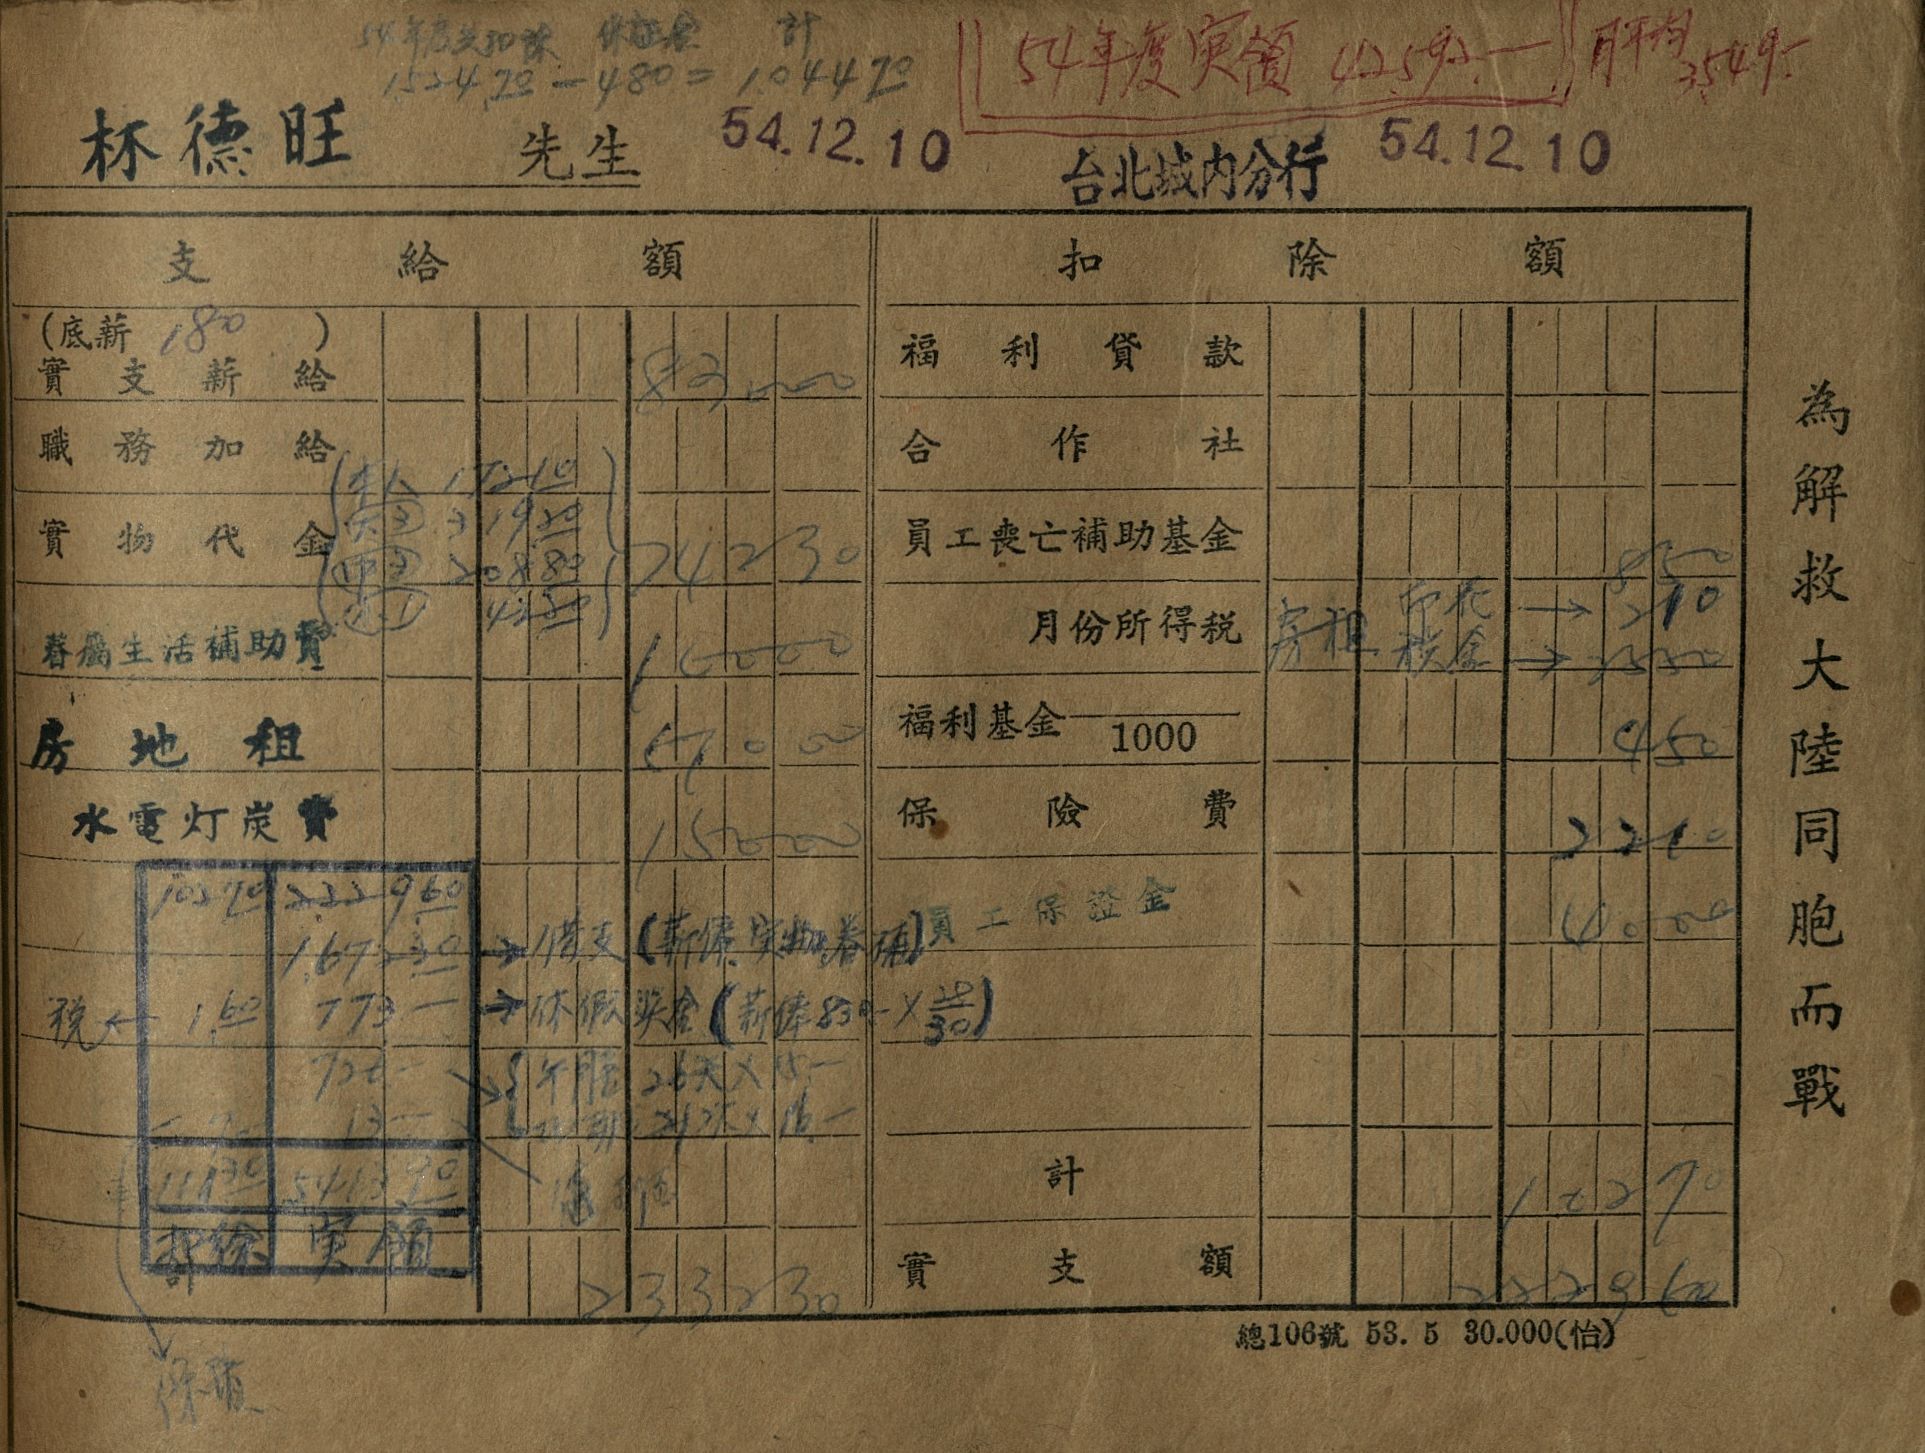 54年度共扣除 保証金 計
1,524.70 - 480 = 1,044.70
54年度実領 42,592.－ 月平均 3,549.-
林德旺 先生 54.12.10 台北城內分行 54.12.10
支給額 扣除額
(底薪 180 )
實支薪給 830 00 福利貸款
職務加給 合作社
本人 172.10
319.20
實物代金 742 30 員工喪亡補助基金 8 50
208.80
42.20
印花 → 2 10
月份所得稅 房租 稅金 → 25 50
眷屬生活補助費 160 00
房地租 450 00 福利基金 1000 4 50
水電灯炭費 150 00 保險費 22 10
102.70 2,229.60 員工保證金 40 00
1,673.30 → 借支(薪俸.実物.眷補)
税 ← 1.60 773－ → 休假奨金(薪俸830－×28/30)
726－ 午膳
13－
111.30 5,413.90 計 102 70
扣除 実領
計 2332 30 實支額 2229 60
總106號 53. 5 30.000(怡)
保險
為解救大陸同胞而戰